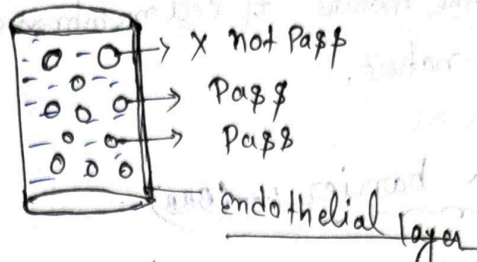 x not Pass
Pass
Pass
Endothelial layer